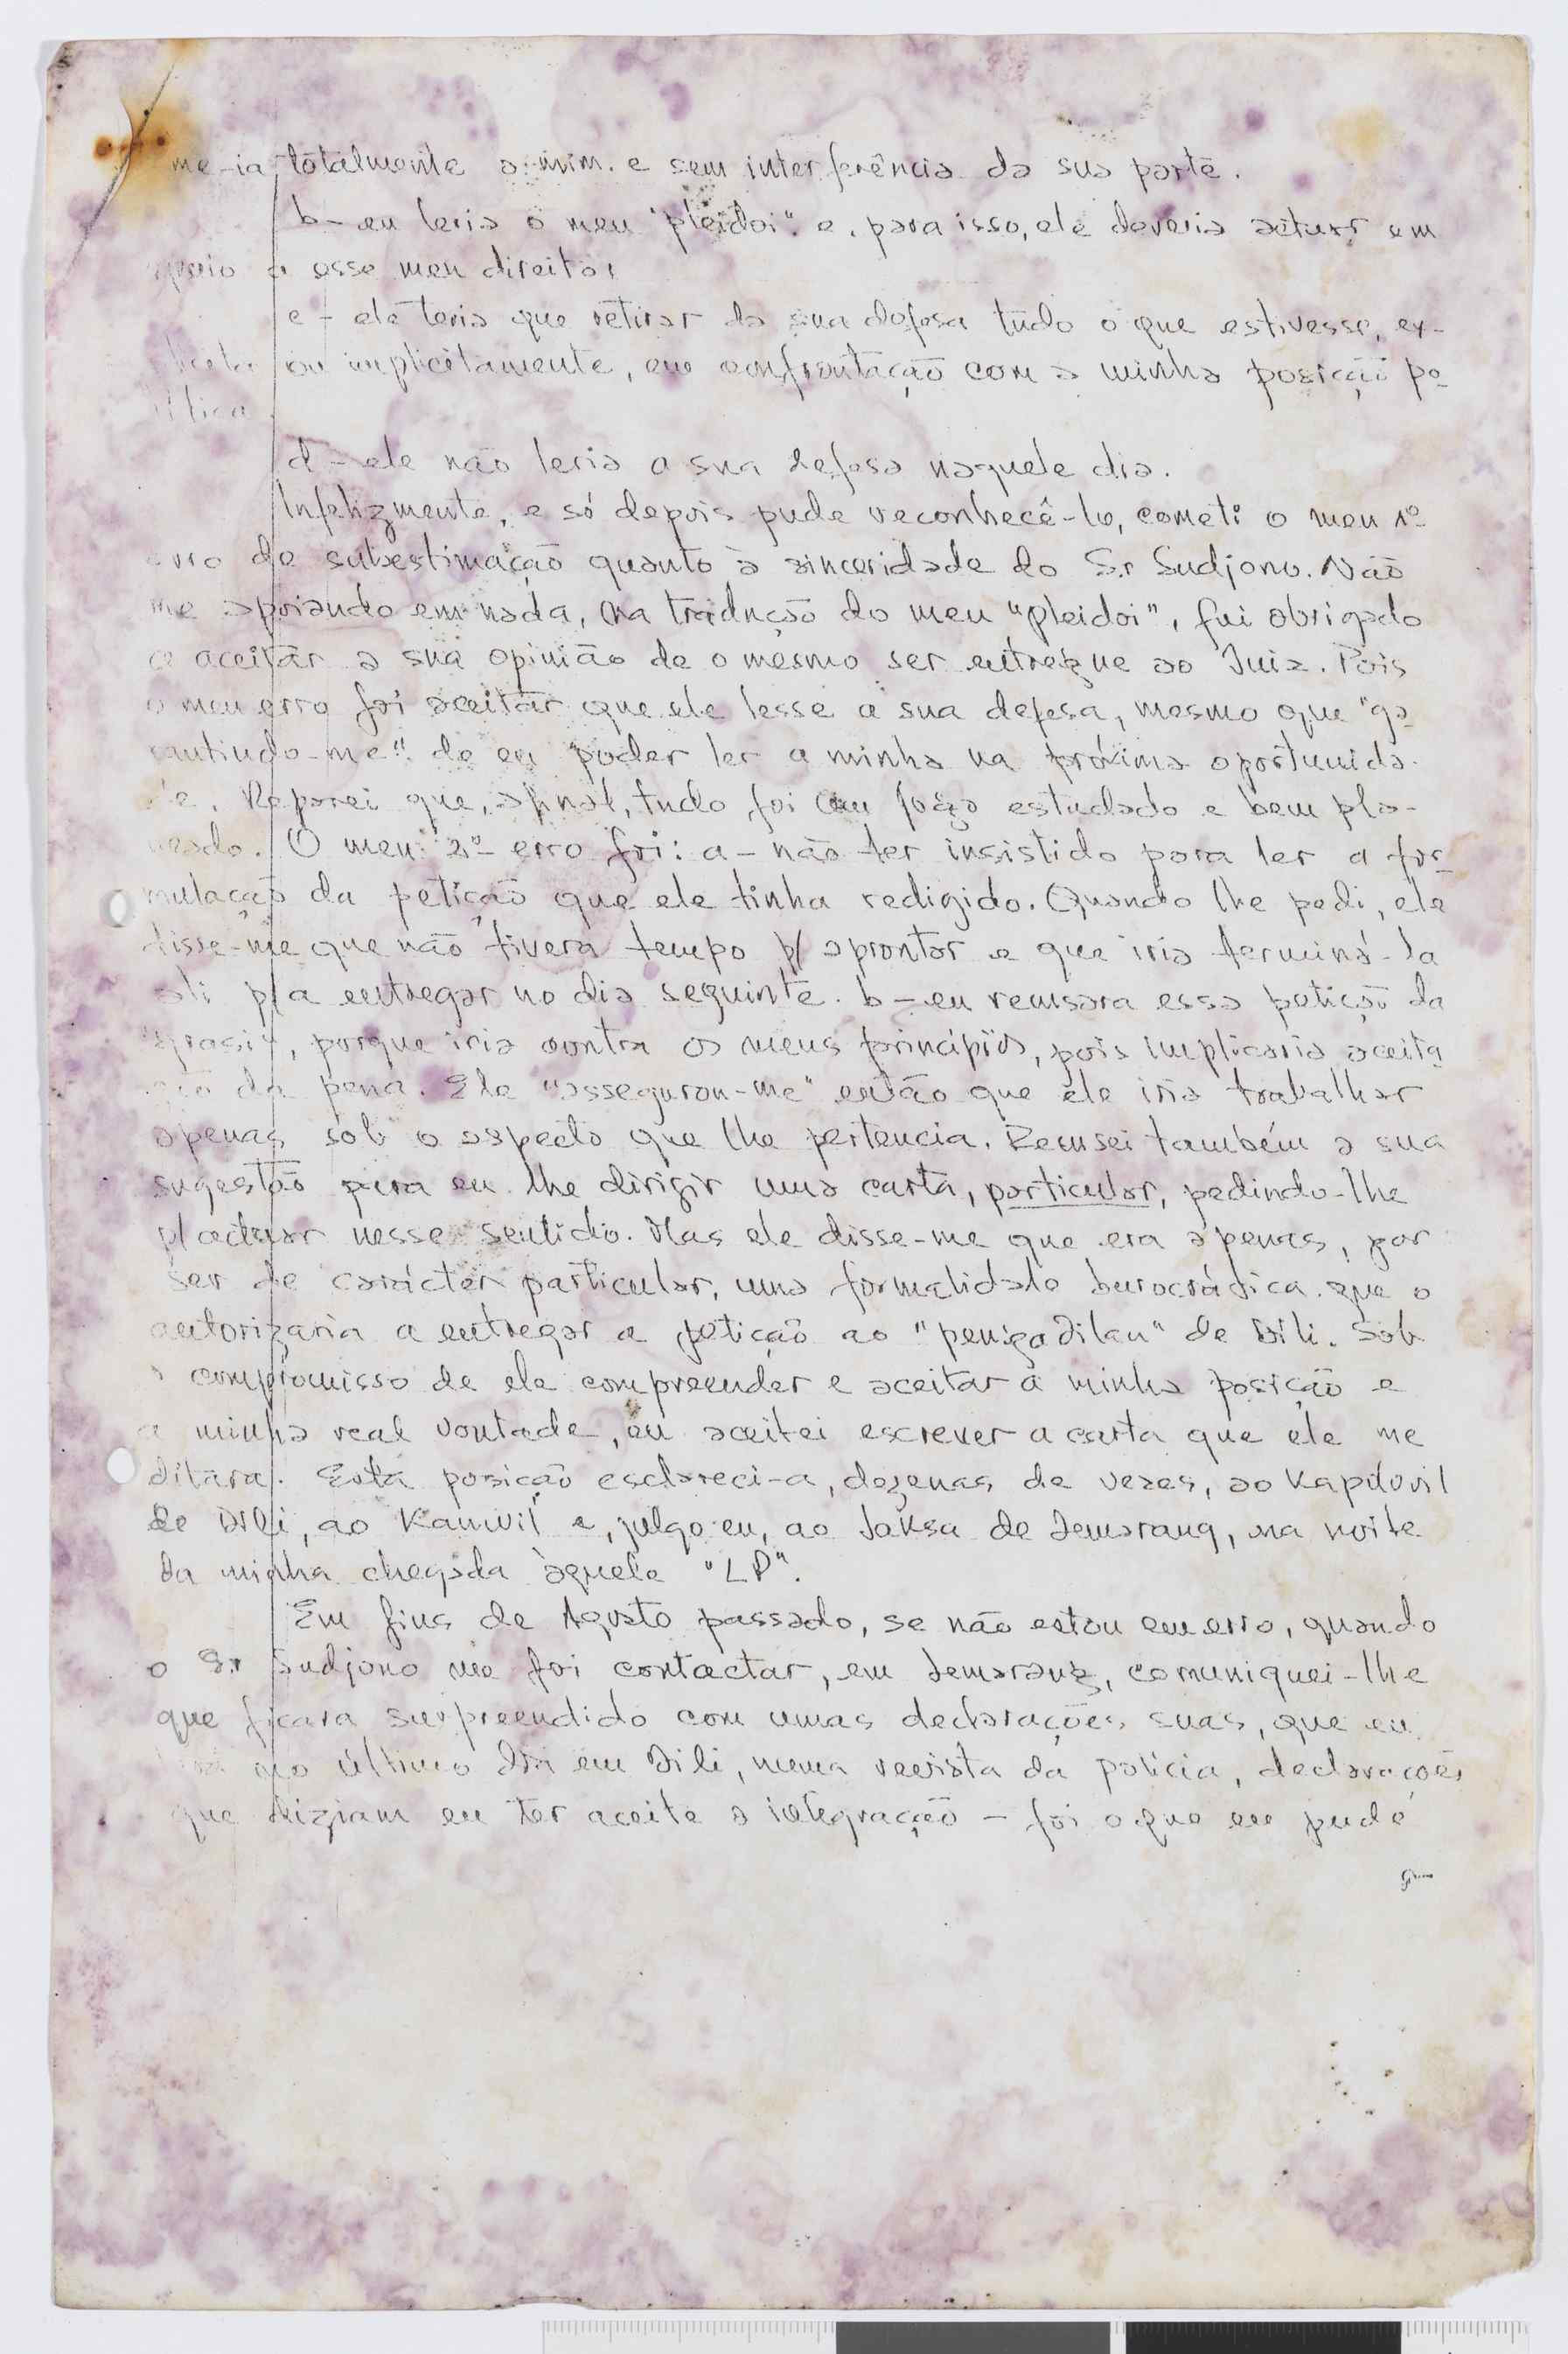 me-ia totalmente a mim. e sem interferência da sua parte.
b- eu leria o meu "pleidoi" e, para isso, ele deveria actuar em
apoio a esse meu direito;
c- ele teria que retirar da sua defesa tudo o que estivesse, ex-
ou implicitamente, em confrontação com a minha posição po-
lítica.
d- ele não leria a sua defesa naquele dia.
Infelizmente, e só depois pude reconhecê-lo, cometi o meu 1º
erro de subestimação quanto à sinceridade do Sr Sudjono. Não
me apoiando em nada, na tradução do meu "pleidoi", fui obrigado
a aceitar a sua opinião de o mesmo ser entregue ao Juiz. Pois
o meu erro foi aceitar que ele lesse a sua defesa, mesmo que "ga-
rantindo-me" de eu poder ler a minha na próxima oportunida-
de. Reparei que, afinal, tudo foi um jogo estudado e bem pla-
neado. O meu 2º erro foi: a- não ter insistido para ler a for-
mulação da petição que ele tinha redigido. Quando lhe pedi, ele
disse-me que não tivera tempo p/ aprontar e que iria terminá-la
ali p/a entregar no dia seguinte. b- eu recusara essa petição da
"grasi", porque iria contra os meus princípios, pois implicaria aceita-
ção da pena. Ele "assegurou-me" então que ele iria trabalhar
apenas sob o aspecto que lhe pertencia. Recusei também a sua
sugestão para eu lhe dirigir uma carta, particular, pedindo-lhe
p/ actuar nesse sentido. Mas ele disse-me que era apenas, por
ser de carácter particular, uma formalidade burocrática que o
autorizaria a entregar a petição ao "pengadilan" de Dili. Sob
o compromisso de ele compreender e aceitar a minha posição e
a minha real vontade, eu aceitei escrever a carta que ele me
ditara. Esta posição esclareci-a, dezenas de vezes, ao Kapolwil
de Dili, ao Kanwil e, julgo eu, ao Jaksa de Semarang, na noite
da minha chegada àquele "LP".
Em fins de Agosto passado, se não estou em erro, quando
o Sr Sudjono me foi contactar, em Semarang, comuniquei-lhe
que ficara surpreendido com umas declarações suas, que eu
no último dia em Dili, numa revista da polícia, declarações
que diziam eu ter aceite a integração - foi o que eu pude